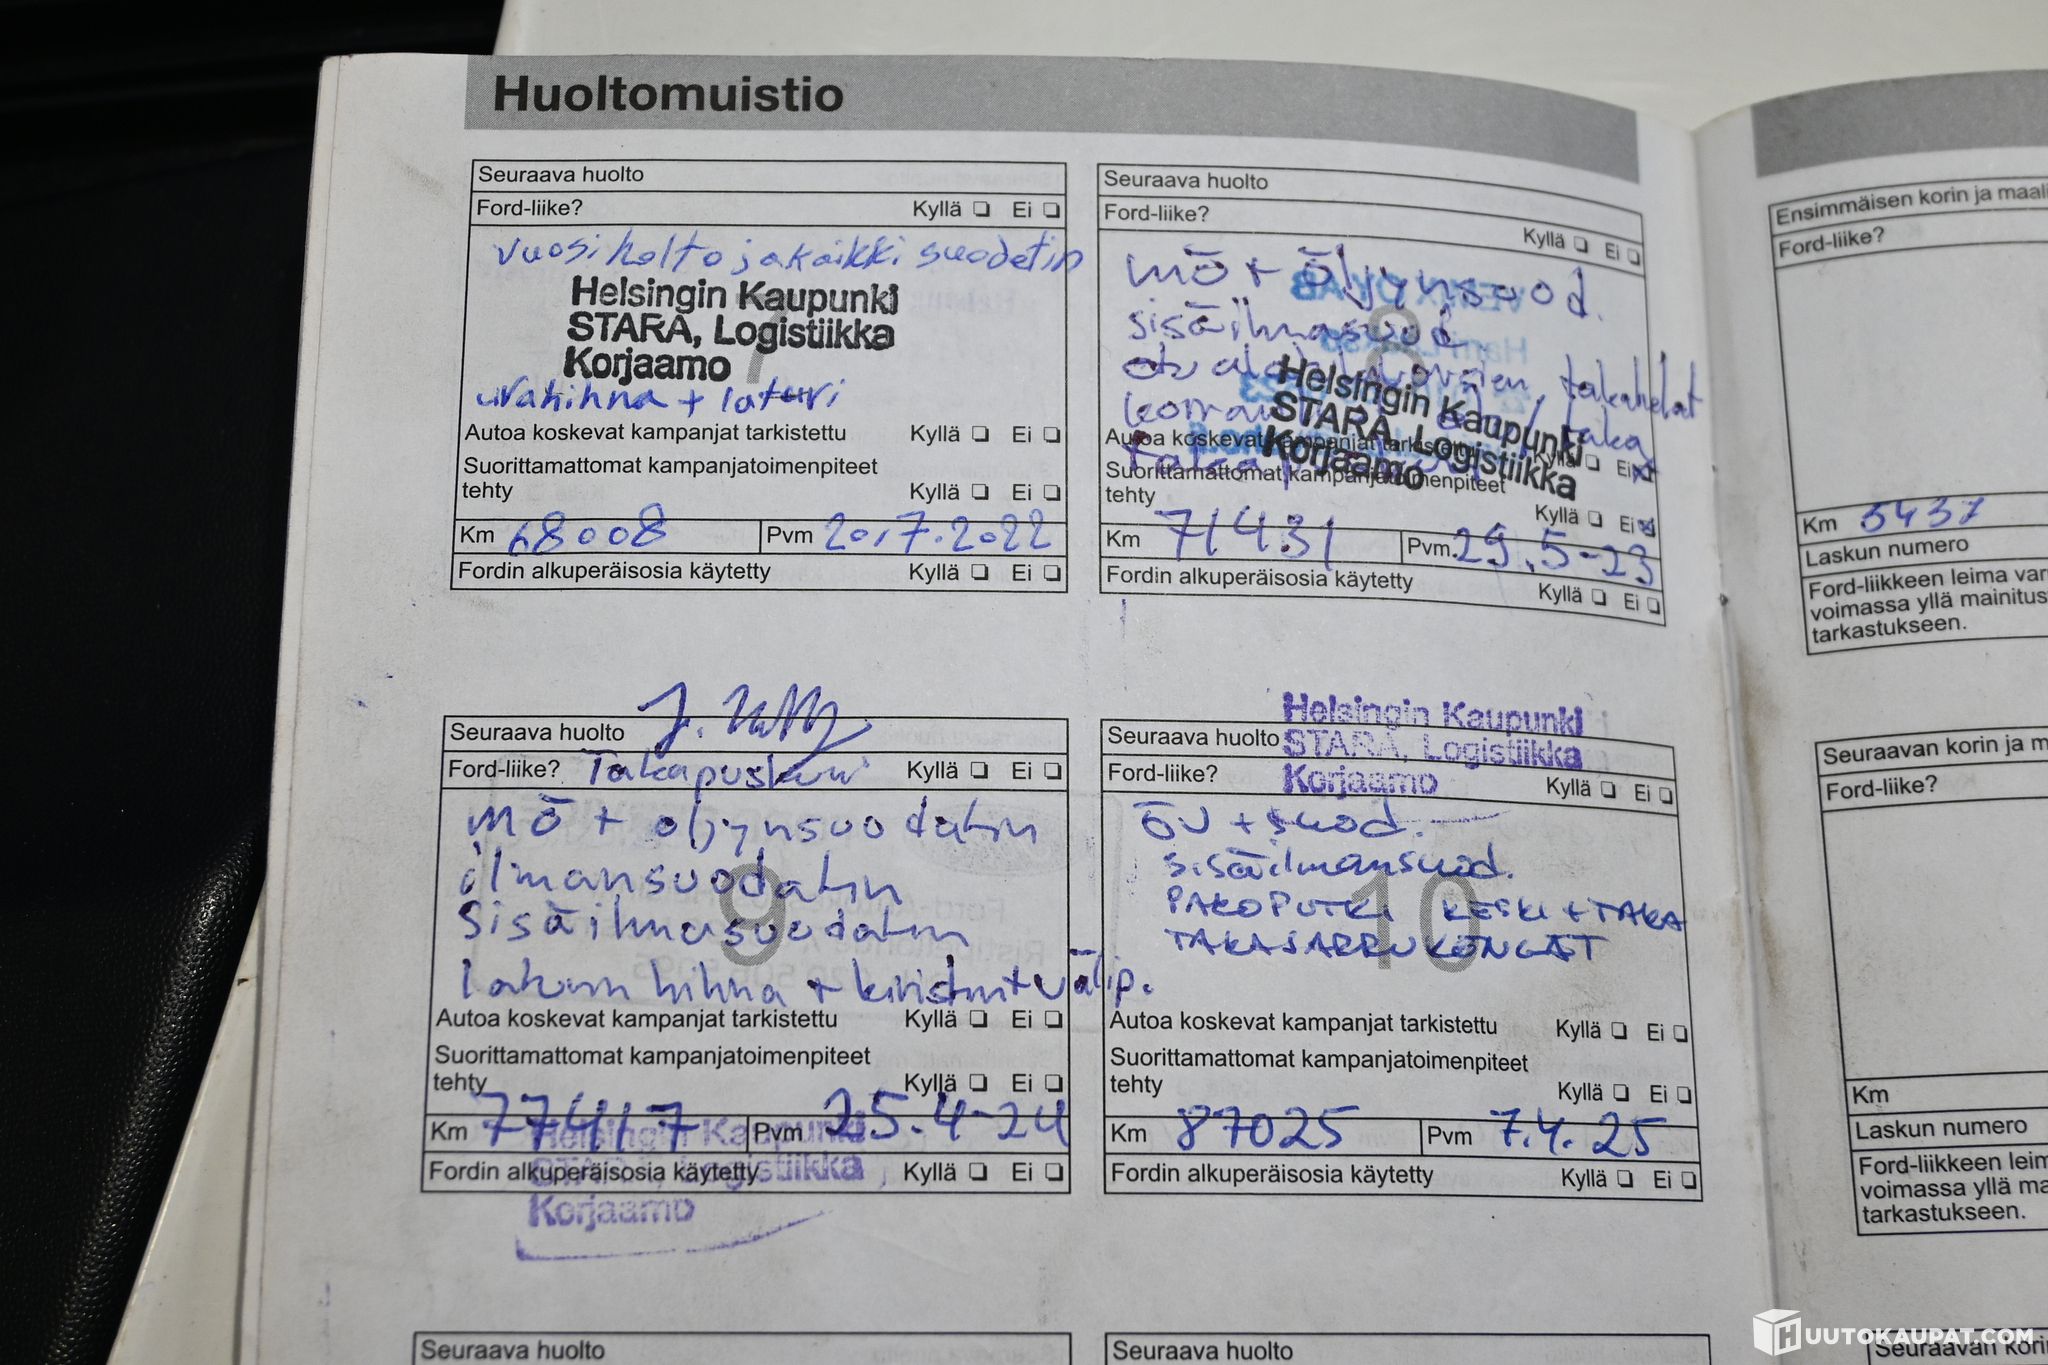 Huoltomuistio
Seuraava huolto
Ford-liike? Kyllä Ei
vuosiholto ja kaikki suodetin
7
Helsingin Kaupunki
STARA, Logistiikka
Korjaamo
urahihna + laturi
Autoa koskevat kampanjat tarkistettu Kyllä Ei
Suorittamattomat kampanjatoimenpiteet
tehty Kyllä Ei
Km 68008 Pvm 20.7.2022
Fordin alkuperäisosia käytetty Kyllä Ei
Seuraava huolto
Ford-liike? Kyllä Ei
mö + öljynsuod.
8
sisäilmasuod
takahelat
Helsingin Kaupunki
STARA, Logistiikka
Korjaamo
taka
Autoa koskevat kampanjat tarkistettu Kyllä Ei
Suorittamattomat kampanjatoimenpiteet
tehty Kyllä Ei
Km 71431 Pvm 29.5-23
Fordin alkuperäisosia käytetty Kyllä Ei
Seuraava huolto
Ford-liike? Takapuskuri Kyllä Ei
mö + oljynsuodatin
ilmansuodatin
9
sisäilmasuodatin
laturin hihna + kiristin + välip.
Autoa koskevat kampanjat tarkistettu Kyllä Ei
Suorittamattomat kampanjatoimenpiteet
tehty Kyllä Ei
Km 77417 Pvm 25.4-24
Fordin alkuperäisosia käytetty Kyllä Ei
Helsingin Kaupunki
STARA, Logistiikka
Korjaamo
Helsingin Kaupunki
STARA, Logistiikka
Korjaamo
Seuraava huolto
Ford-liike? Kyllä Ei
öv + suod.
sisäilmansuod.
10
PAKOPUTKI KESKI + TAKA
TAKAJARRUKENGÄT
Autoa koskevat kampanjat tarkistettu Kyllä Ei
Suorittamattomat kampanjatoimenpiteet
tehty Kyllä Ei
Km 87025 Pvm 7.4.25
Fordin alkuperäisosia käytetty Kyllä Ei
Seuraava huolto
Seuraava huolto
Ensimmäisen korin ja maali
Ford-liike?
Km 5437
Laskun numero
Ford-liikkeen leima var
voimassa yllä mainitus
tarkastukseen.
Seuraavan korin ja m
Ford-liike?
Km
Laskun numero
Ford-liikkeen leim
voimassa yllä ma
tarkastukseen.
Seuraavan kori
HUUTOKAUPAT.COM